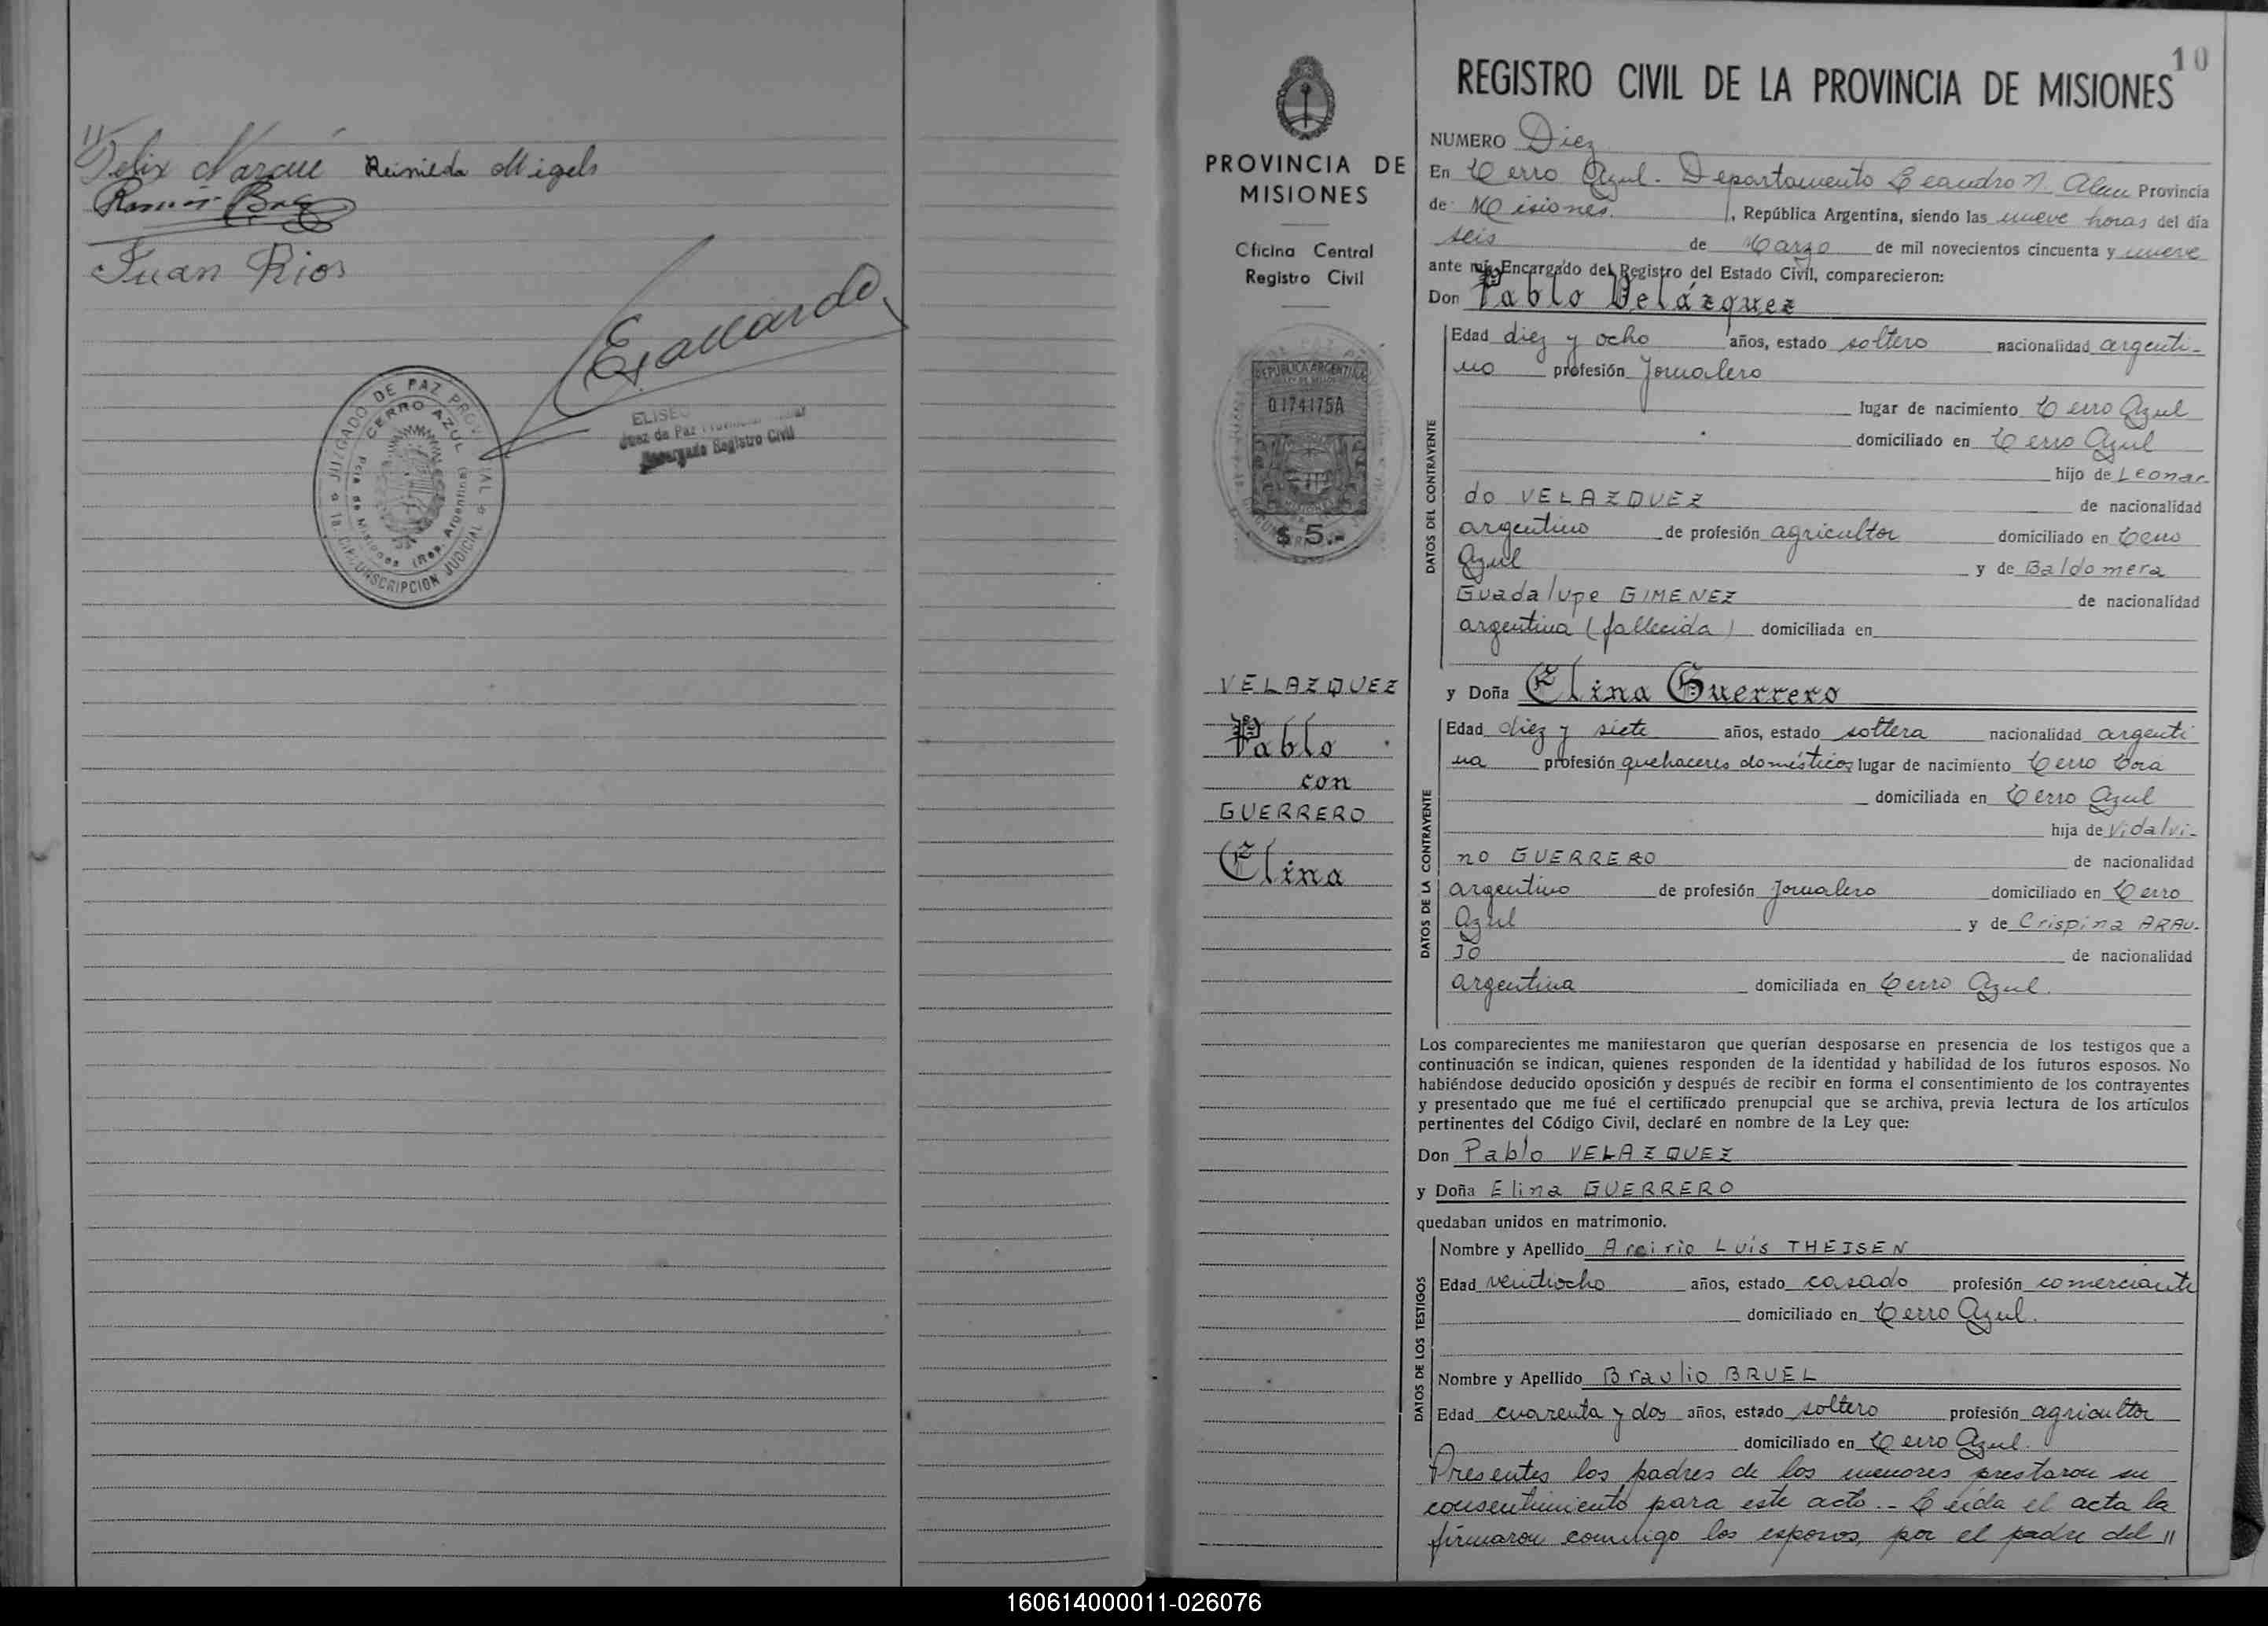 Felix Marqué Reinilda Migels
Ramón
Juan Rios
JUZGADO DE PAZ PROVINCIAL
CERRO AZUL
Pcia. de Misiones (Rep. Argentina)
1a. CIRCUNSCRIPCION JUDICIAL
ELISEO
Juez de Paz Provincial
Encargado Registro Civil
PROVINCIA DE
MISIONES
Oficina Central
Registro Civil
REPUBLICA ARGENTINA
0174175A
MISIONES
$ 5.-
VELAZQUEZ
Pablo
con
GUERRERO
Elina
10
REGISTRO CIVIL DE LA PROVINCIA DE MISIONES
NUMERO Diez
En Cerro Azul. Departamento Leandro N. Alem Provincia
de Misiones. , República Argentina, siendo las nueve horas del día
seis de Marzo de mil novecientos cincuenta y nueve
ante mí, Encargado del Registro del Estado Civil, comparecieron:
Don Pablo Velázquez
DATOS DEL CONTRAYENTE
Edad diez y ocho años, estado soltero nacionalidad argenti-
no profesión Jornalero
lugar de nacimiento Cerro Azul
domiciliado en Cerro Azul
hijo de Leonar-
do VELAZQUEZ de nacionalidad
argentino de profesión agricultor domiciliado en Cerro
Azul y de Baldomera
Guadalupe GIMENEZ de nacionalidad
argentina (fallecida) domiciliada en
y Doña Elina Guerrero
DATOS DE LA CONTRAYENTE
Edad diez y siete años, estado soltera nacionalidad argenti
na profesión quehaceres domésticos lugar de nacimiento Cerro Corá
domiciliada en Cerro Azul
hija de Vidalvi-
no GUERRERO de nacionalidad
argentino de profesión Jornalero domiciliado en Cerro
Azul y de Crispina ARAU-
JO de nacionalidad
argentina domiciliada en Cerro Azul.
Los comparecientes me manifestaron que querían desposarse en presencia de los testigos que a
continuación se indican, quienes responden de la identidad y habilidad de los futuros esposos. No
habiéndose deducido oposición y después de recibir en forma el consentimiento de los contrayentes
y presentado que me fué el certificado prenupcial que se archiva, previa lectura de los artículos
pertinentes del Código Civil, declaré en nombre de la Ley que:
Don Pablo VELAZQUEZ
y Doña Elina GUERRERO
quedaban unidos en matrimonio.
DATOS DE LOS TESTIGOS
Nombre y Apellido Arcirio Luis THEISEN
Edad veintiocho años, estado casado profesión comerciante
domiciliado en Cerro Azul.
Nombre y Apellido Braulio BRUEL
Edad cuarenta y dos años, estado soltero profesión agricultor
domiciliado en Cerro Azul.
Presentes los padres de los menores prestaron su
consentimiento para este acto.- Leída el acta la
firmaron conmigo los esposos, por el padre del //
160614000011-026076